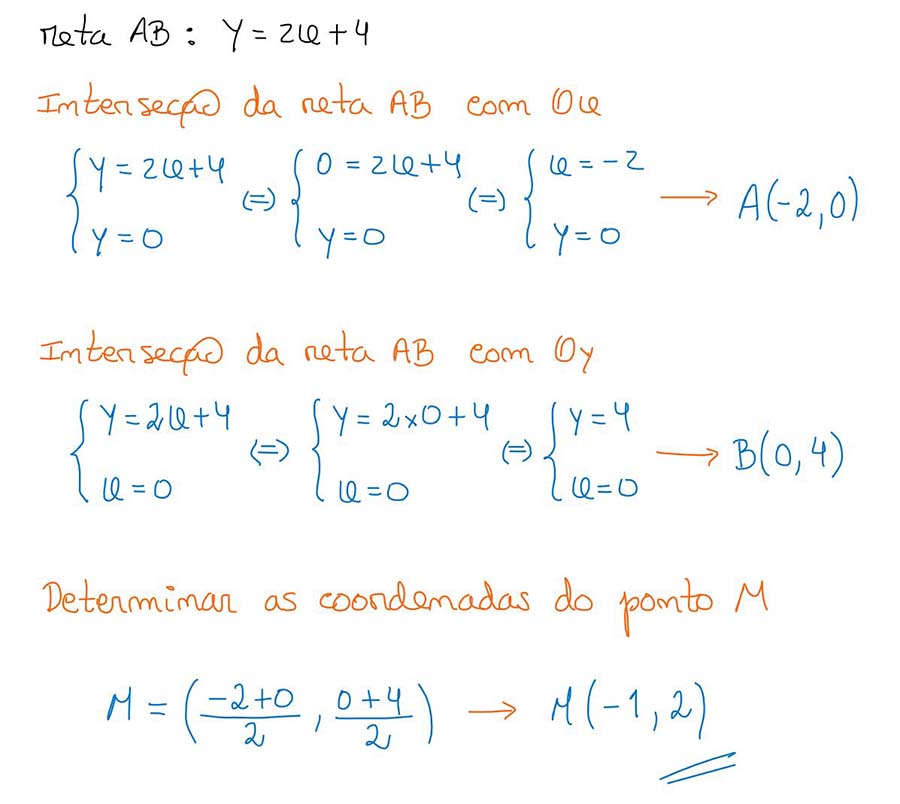 reta AB: y = 2x + 4
Interseção da reta AB com Ox
{ y = 2x + 4 (=) { 0 = 2x + 4 (=) { x = -2 → A(-2, 0)
{ y = 0 { y = 0 { y = 0
Interseção da reta AB com Oy
{ y = 2x + 4 (=) { y = 2×0 + 4 (=) { y = 4 → B(0, 4)
{ x = 0 { x = 0 { x = 0
Determinar as coordenadas do ponto M
M = ( (-2+0)/2 , (0+4)/2 ) → M(-1, 2)